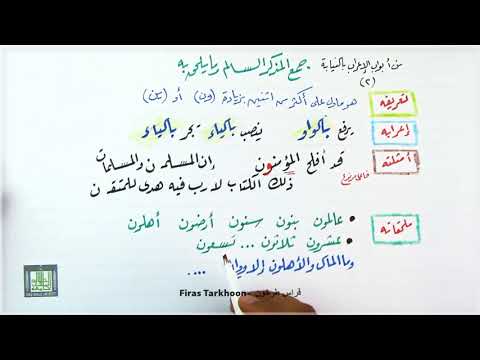 من أبواب الإعراب بالنيابة
(٢)
جمع المذكر السالم وما يلحق به
تعريفه
هو ما دل على أكثر من اثنين بزيادة (ون) أو (ين)
إعرابه
يرفع بالواو ينصب بالياء و تجر بالياء
أمثلته
قد أفلح المؤمنون إن المسلمين والمسلمات
ذلك الكتاب لا ريب فيه هدى للمتقين
ملحقاته
عالمون بنون سنون أرضون أهلون
عشرون ثلاثون ... تسعون
وما المال والأهلون إلا ودائع ....
Firas Tarkhoon - فراس طرخون